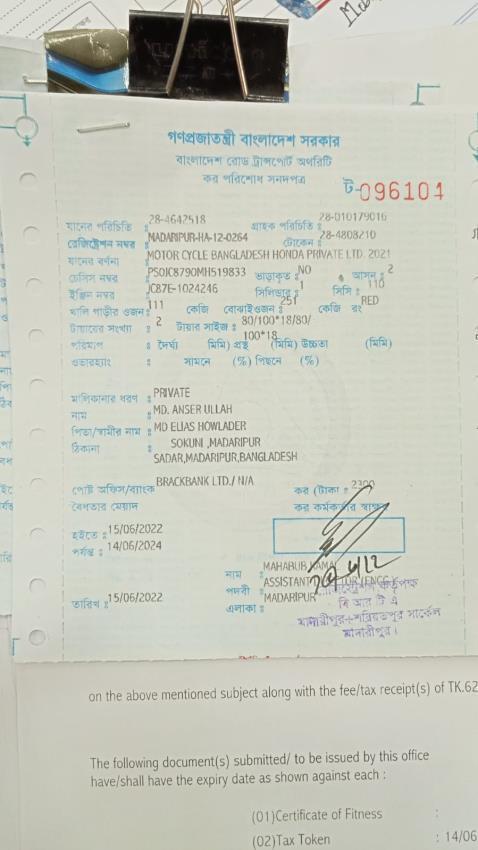 গণপ্রজাতন্ত্রী বাংলাদেশ সরকার
বাংলাদেশ রোড ট্রান্সপোর্ট অথরিটি
কর পরিশোধ সনদপত্র
ট-096104
যানের পরিচিতি : 28-4642518 গ্রাহক পরিচিতি : 28-010179016
রেজিষ্ট্রেশন নম্বর : MADARIPUR-HA-12-0264 টোকেন : 28-4808210
যানের বর্ণনা : MOTOR CYCLE BANGLADESH HONDA PRIVATE LTD. 2021
চেসিস নম্বর : PS0JC8790MH519833 ভাড়াকৃত : NO আসন : 2
ইঞ্জিন নম্বর : JC87E-1024246 সিলিন্ডার : 1 সিসি : 110
খালি গাড়ীর ওজন : 111 কেজি বোঝাইওজন : 251 কেজি রং : RED
টায়ারের সংখ্যা : 2 টায়ার সাইজ : 80/100*18/80/
100*18
পরিমাপ : দৈর্ঘ্য (মিমি) প্রস্থ (মিমি) উচ্চতা (মিমি)
ওভারহ্যাং : সামনে (%) পিছনে (%)
মালিকানার ধরণ : PRIVATE
নাম : MD. ANSER ULLAH
পিতা/স্বামীর নাম : MD ELIAS HOWLADER
ঠিকানা : SOKUNI ,MADARIPUR
SADAR,MADARIPUR,BANGLADESH
পোষ্ট অফিস/ব্যাংক : BRACKBANK LTD./ N/A কর (টাকা : 2300
বৈধতার মেয়াদ কর কর্মকর্তার স্বাক্ষর
হইতে : 15/06/2022
পর্যন্ত : 14/06/2024
নাম : MAHABUB KAMAL
পদবী : ASSISTANT
তারিখ : 15/06/2022 এলাকা : MADARIPUR
বি আর টি এ
মাদারীপুর+শরিয়তপুর সার্কেল
মাদারীপুর।
on the above mentioned subject along with the fee/tax receipt(s) of TK.62
The following document(s) submitted/ to be issued by this office
have/shall have the expiry date as shown against each :
(01)Certificate of Fitness :
(02)Tax Token : 14/06